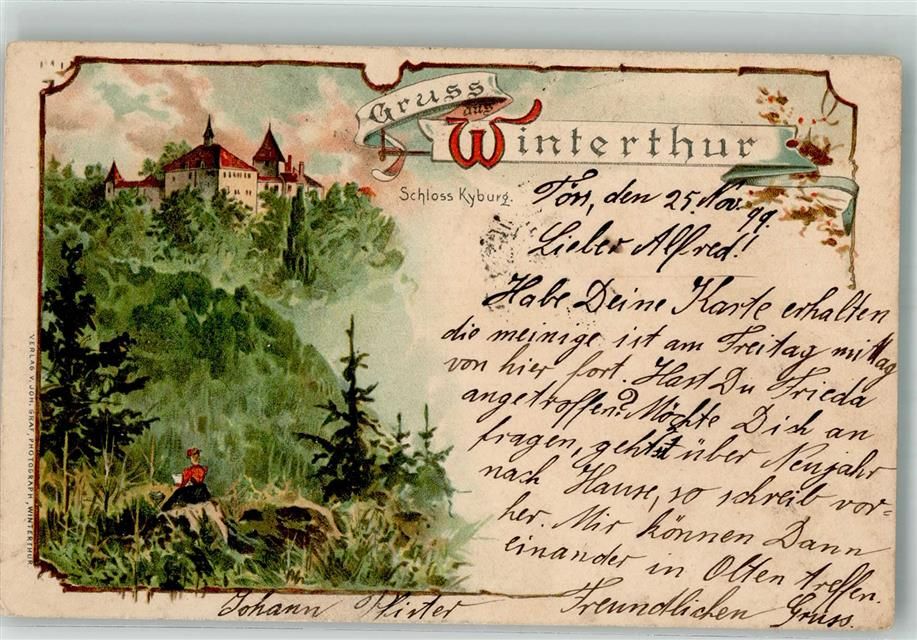 Gruss
aus
Winterthur
Schloss Kyburg.
Töss, den 25. Nov. 99.
Lieber Alfred!
Habe Deine Karte erhalten
die meinige ist am Freitag mittag
von hier fort. Hast Du Frieda
angetroffen? Möchte Dich an
fragen, gehst über Neujahr
nach Hause, so schreib vor=
her. Mir können Dann
einander in Olten treffen.
Freundlichen Gruss.
Johann Pfister
VERLAG V. JOH. GRAF, PHOTOGRAPH, WINTERTHUR